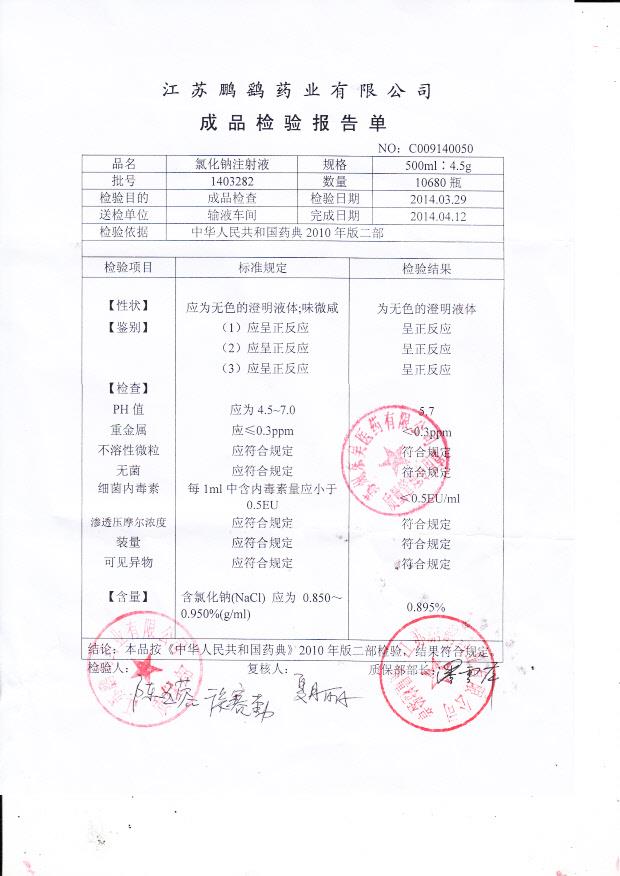 江苏鹏鹞药业有限公司
成品检验报告单
NO：C009140050
品名 氯化钠注射液 规格 500ml：4.5g
批号 1403282 数量 10680 瓶
检验目的 成品检查 检验日期 2014.03.29
送检单位 输液车间 完成日期 2014.04.12
检验依据 中华人民共和国药典 2010 年版二部
检验项目 标准规定 检验结果
【性状】 应为无色的澄明液体;味微咸 为无色的澄明液体
【鉴别】 （1）应呈正反应 呈正反应
（2）应呈正反应 呈正反应
（3）应呈正反应 呈正反应
【检查】
PH 值 应为 4.5~7.0 5.7
重金属 应≤0.3ppm ≤0.3ppm
不溶性微粒 应符合规定 符合规定
无菌 应符合规定 符合规定
细菌内毒素 每 1ml 中含内毒素量应小于
0.5EU ≤0.5EU/ml
渗透压摩尔浓度 应符合规定 符合规定
装量 应符合规定 符合规定
可见异物 应符合规定 符合规定
【含量】 含氯化钠(NaCl) 应为 0.850～
0.950%(g/ml) 0.895%
结论：本品按《中华人民共和国药典》2010 年版二部检验，结果符合规定
检验人： 复核人： 质保部部长：
夏丽
医药有限公司
业有限公司